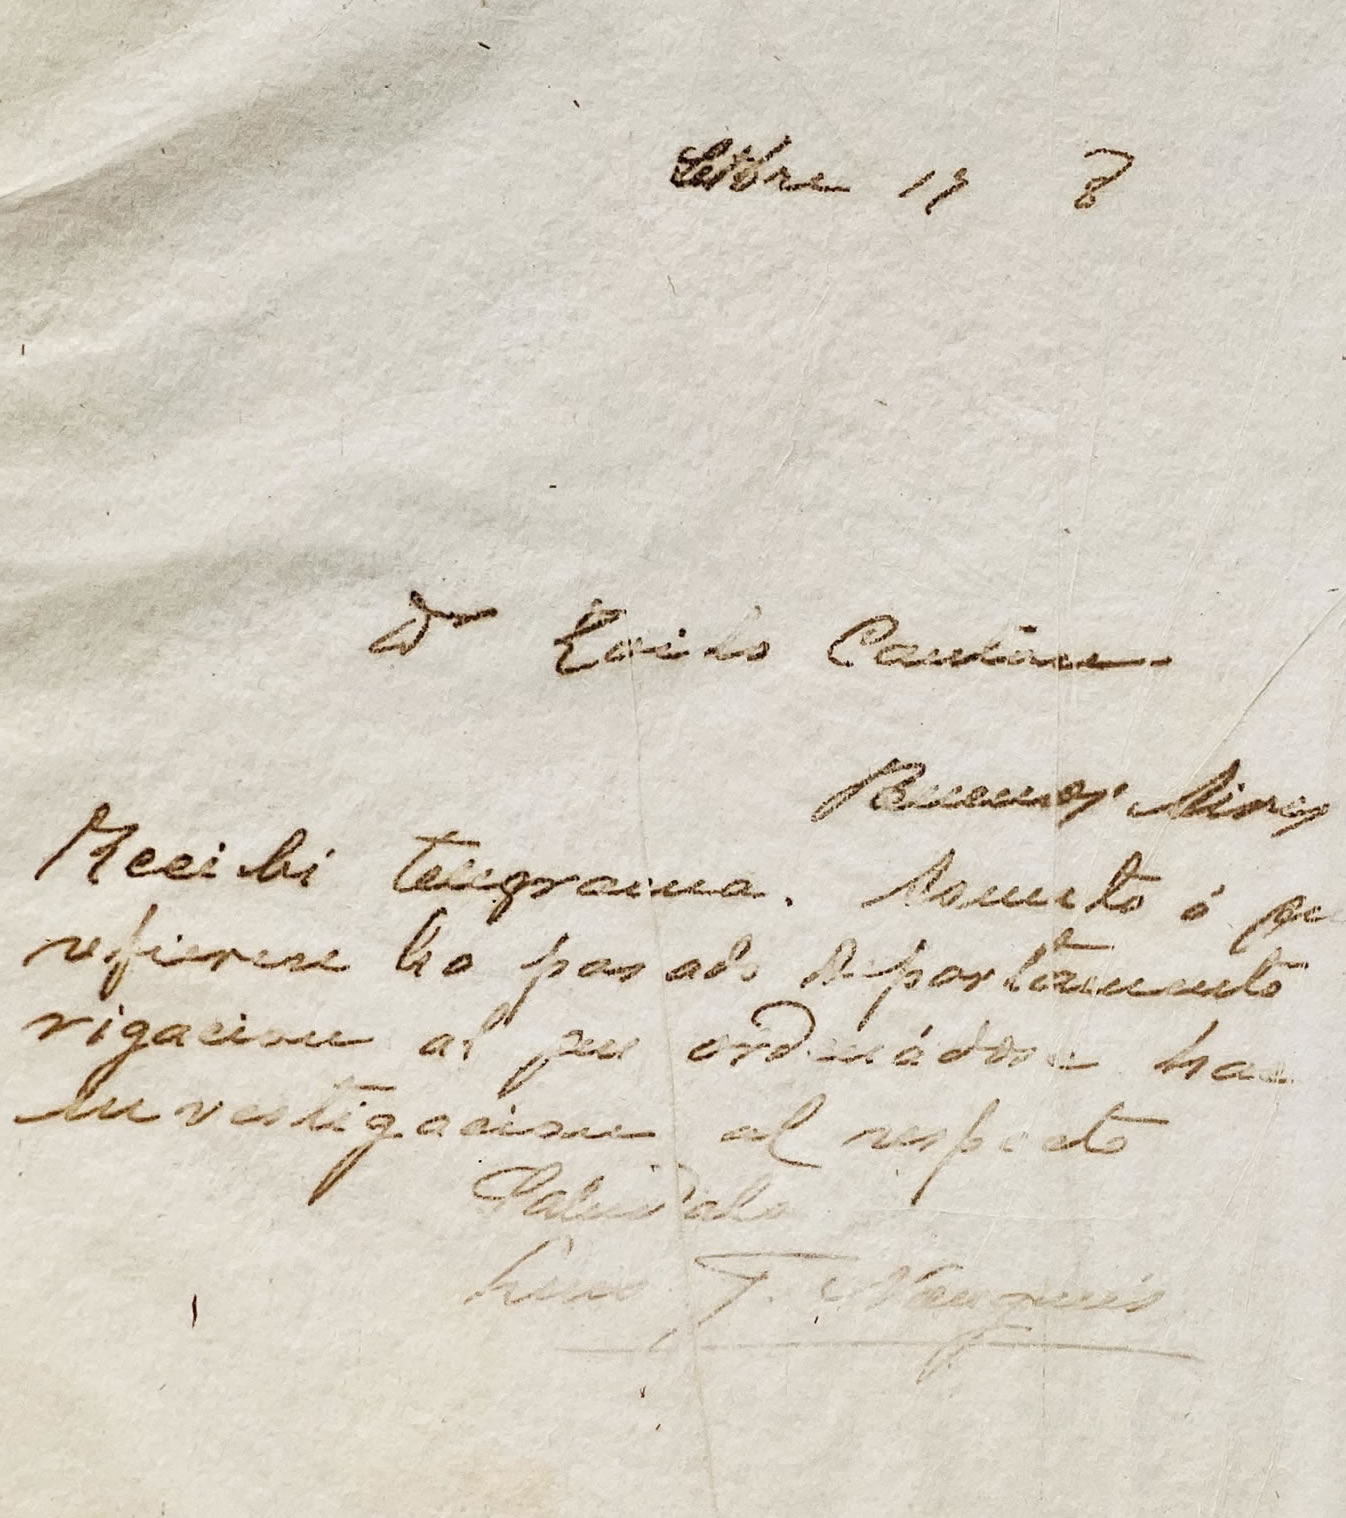 Setbre 17 8
Dr Zoilo Canton
Buenos Aires
Recibi telegrama. Asunto á que
refierese ha pasado Departamento
rigacion al que ordenádose hac
investigacion al respecto
Salúdalo
Lino T. Nauguis